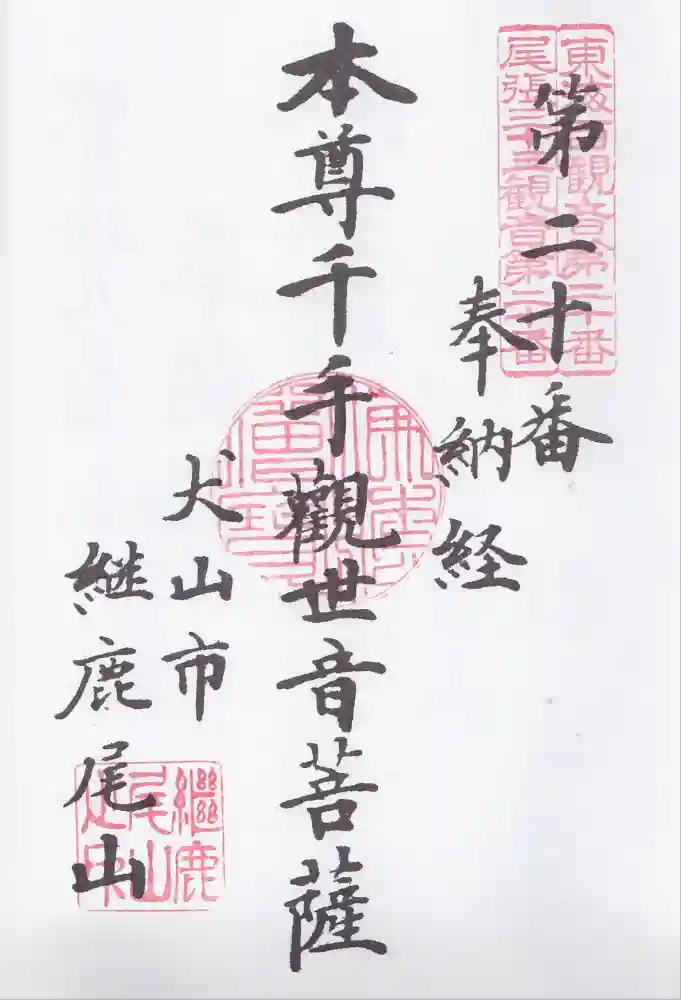 東海百観音第二十番
尾張三十三観音第二十番
第二十番
奉納経
本尊千手觀世音菩薩
犬山市
継鹿尾山
繼鹿
尾山